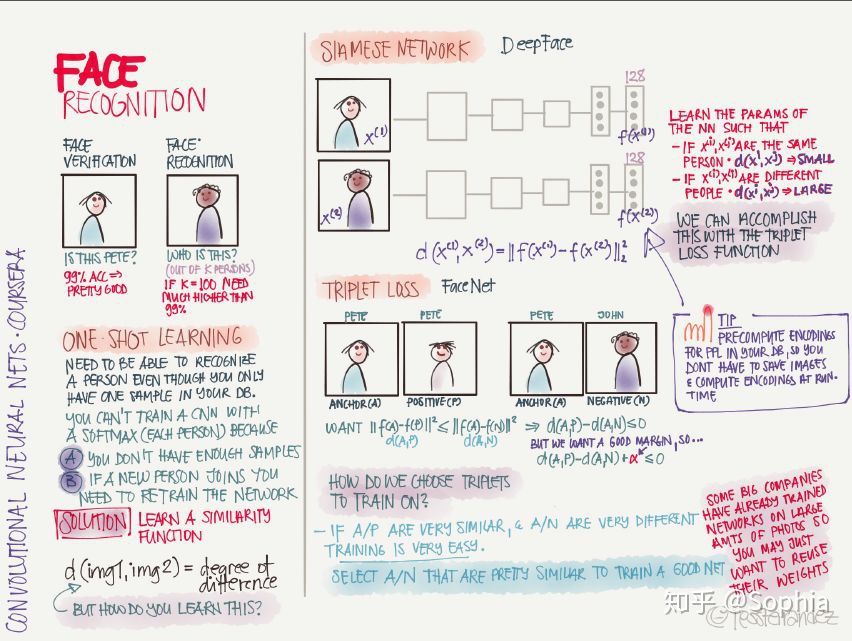 CONVOLUTIONAL NEURAL NETS · COURSERA
FACE
RECOGNITION
FACE
VERIFICATION
IS THIS PETE?
99% ACC ⇒
PRETTY GOOD
FACE·
RECOGNITION
WHO IS THIS?
(OUT OF K PERSONS)
IF K=100 NEED
MUCH HIGHER THAN
99%
ONE·SHOT LEARNING
NEED TO BE ABLE TO RECOGNIZE
A PERSON EVEN THOUGH YOU ONLY
HAVE ONE SAMPLE IN YOUR DB.
YOU CAN'T TRAIN A CNN WITH
A SOFTMAX (EACH PERSON) BECAUSE
A YOU DON'T HAVE ENOUGH SAMPLES
B IF A NEW PERSON JOINS YOU
NEED TO RETRAIN THE NETWORK
SOLUTION LEARN A SIMILARITY
FUNCTION
d(img1, img2) = degree of
difference
BUT HOW DO YOU LEARN THIS?
SIAMESE NETWORK DEEPFACE
x⁽¹⁾
128
f(x⁽¹⁾)
x⁽²⁾
128
f(x⁽²⁾)
d(x⁽¹⁾, x⁽²⁾) = ‖f(x⁽¹⁾) – f(x⁽²⁾)‖²₂
LEARN THE PARAMS OF
THE NN SUCH THAT
– IF x⁽ⁱ⁾, x⁽ʲ⁾ ARE THE SAME
PERSON · d(xⁱ, xʲ) ⇒ SMALL
– IF x⁽ⁱ⁾, x⁽ʲ⁾ ARE DIFFERENT
PEOPLE · d(xⁱ, xʲ) ⇒ LARGE
WE CAN ACCOMPLISH
THIS WITH THE TRIPLET
LOSS FUNCTION
TIP
PRECOMPUTE ENCODINGS
FOR PPL IN YOUR DB, SO YOU
DONT HAVE TO SAVE IMAGES
& COMPUTE ENCODINGS AT RUN-
TIME
TRIPLET LOSS FaceNet
PETE PETE PETE JOHN
ANCHOR (A) POSITIVE (P) ANCHOR (A) NEGATIVE (N)
WANT ‖f(A)–f(P)‖² ≤ ‖f(A)–f(N)‖² ⇒ d(A,P) – d(A,N) ≤ 0
d(A,P) d(A,N) BUT WE WANT A GOOD MARGIN, SO...
d(A,P) – d(A,N) + α ≤ 0
HOW DO WE CHOOSE TRIPLETS
TO TRAIN ON?
– IF A/P ARE VERY SIMILAR, & A/N ARE VERY DIFFERENT
TRAINING IS VERY EASY.
SELECT A/N THAT ARE PRETTY SIMILAR TO TRAIN A GOOD NET
SOME BIG COMPANIES
HAVE ALREADY TRAINED
NETWORKS ON LARGE
AMTS OF PHOTOS SO
YOU MAY JUST
WANT TO REUSE
THEIR WEIGHTS
知乎 @Sophia
@TessFerrandez